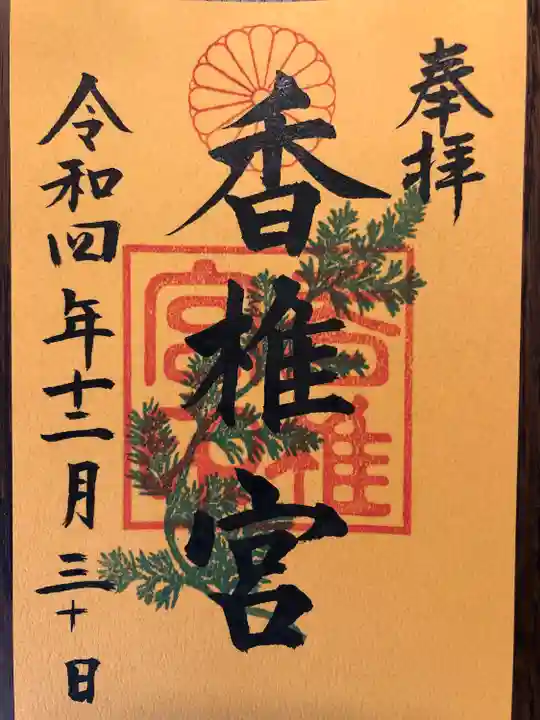 奉拝
香椎宮
令和四年十二月三十日